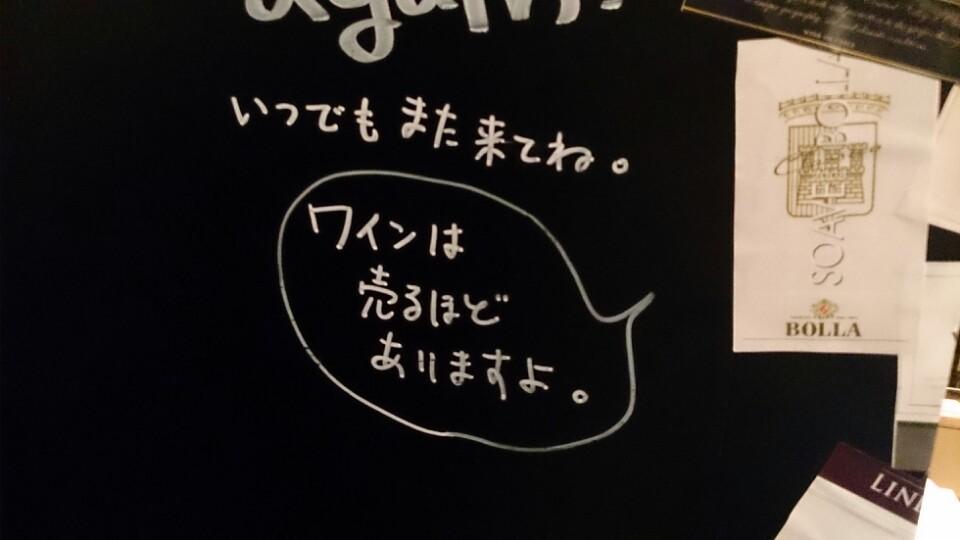 again!
いつでも また 来てね。
ワインは
売るほど
ありますよ。
SOAVE BOLLA
BOLLA